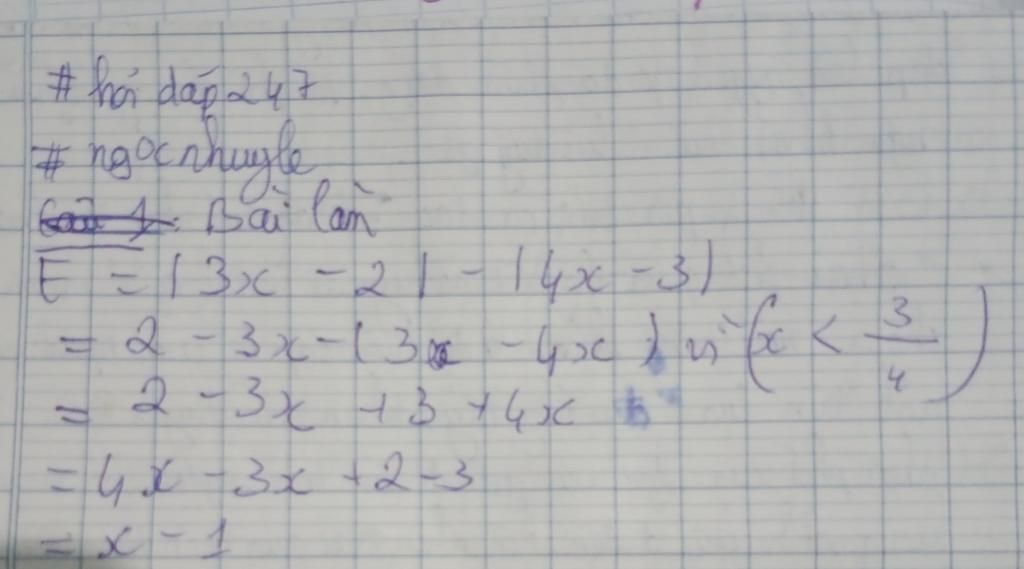 # hỏi đáp247
# ngocnhuyle
Bài làm
E = |3x - 2| - |4x - 3|
= 2 - 3x - (3 - 4x) vì (x < 3/4)
= 2 - 3x + 3 + 4x
= 4x - 3x + 2 - 3
= x - 1